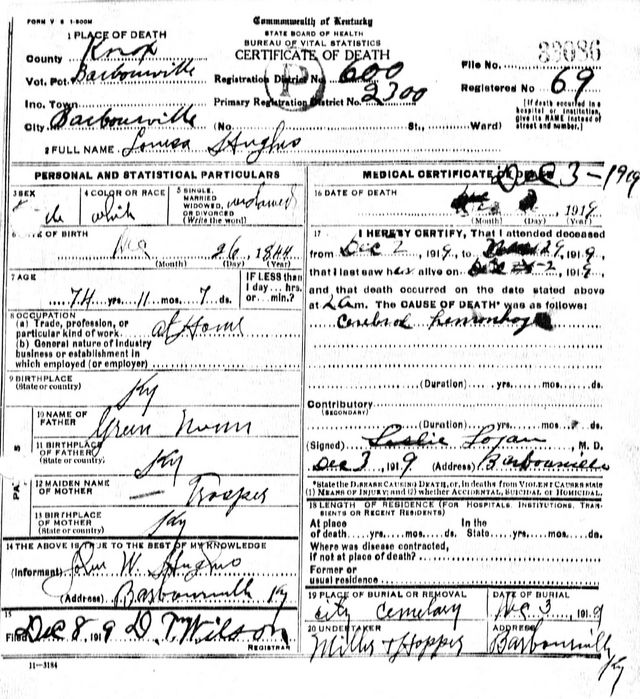 FORM V S 1-500M
Commonwealth of Kentucky
STATE BOARD OF HEALTH
BUREAU OF VITAL STATISTICS
CERTIFICATE OF DEATH
1 PLACE OF DEATH
County Knox
Vot. Pct. Barbourville
Inc. Town
City Barbourville
Registration District No. 600
Primary Registration District No. 2300
(No. St., Ward)
File No. 33086
Registered No. 69
[If death occurred in a hospital or institution, give its NAME instead of street and number.]
2 FULL NAME Louisa Hughes
PERSONAL AND STATISTICAL PARTICULARS
3 SEX
4 COLOR OR RACE white
5 SINGLE, MARRIED WIDOWED, OR DIVORCED (Write the word) widowed
OF BIRTH
26, 1844
(Month) (Day) (Year)
7 AGE
74 yrs. 11 mos. 7 ds.
IF LESS than 1 day hrs. or min.?
8 OCCUPATION
(a) Trade, profession, or particular kind of work at Home
(b) General nature of industry business or establishment in which employed (or employer)
9 BIRTHPLACE (State or country) Ky
10 NAME OF FATHER Green
11 BIRTHPLACE OF FATHER (State or country) Ky
12 MAIDEN NAME OF MOTHER Trosper
13 BIRTHPLACE OF MOTHER (State or country) Ky
14 THE ABOVE IS TRUE TO THE BEST OF MY KNOWLEDGE
(Informant) John W. Hughes
(Address) Barbourville Ky
15
Filed Dec 8, 1919 D. T. Wilson
REGISTRAR
11-3184
MEDICAL CERTIFICATE OF DEATH
Dec 3-1919
16 DATE OF DEATH
1919
(Month) (Day) (Year)
17 I HEREBY CERTIFY, That I attended deceased
from Dec 2, 1919, to 29, 1919,
that I last saw her alive on 2, 1919,
and that death occurred on the date stated above
at 2 am. The CAUSE OF DEATH* was as follows:
Cerebral hemorrhage
(Duration) yrs. mos. ds.
Contributory
(SECONDARY)
(Duration) yrs. mos. ds.
(Signed) Leslie Logan, M. D.
Dec 3, 1919 (Address) Barbourville
*State the DISEASE CAUSING DEATH, or, in deaths from VIOLENT CAUSES state (1) MEANS OF INJURY; and (2) whether ACCIDENTAL, SUICIDAL OR HOMICIDAL.
18 LENGTH OF RESIDENCE (FOR HOSPITALS, INSTITUTIONS, TRANSIENTS OR RECENT RESIDENTS)
At place of death yrs. mos. ds. In the State yrs. mos. ds.
Where was disease contracted, if not at place of death?
Former or usual residence
19 PLACE OF BURIAL OR REMOVAL City Cemetary
DATE OF BURIAL Dec 3, 1919
20 UNDERTAKER Miller & Hopper
ADDRESS Barbourville Ky